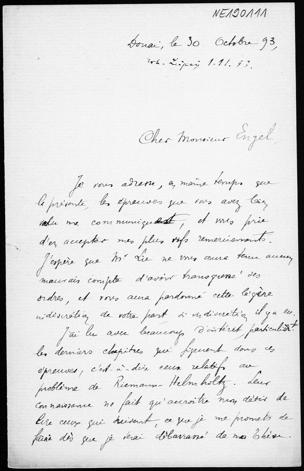 NE190111
Douai, le 30 Octobre 93,
Leipzig 1.11.93.
Cher Monsieur Engel,
Je vous adresse, en même temps que
la présente, les épreuves que vous avez bien
voulu me communiquer, et vous prie
d'en accepter mes plus vifs remerciements.
J'espère que Mr Lie ne vous aura tenu aucun
mauvais compte d'avoir transgressé ses
ordres, et vous aura pardonné cette légère
indiscrétion de votre part si indiscrétion il y a eu.
J'ai lu avec beaucoup d'intérêt particulièrt
les derniers chapitres qui figurent dans ces
épreuves, c'est-à-dire ceux relatifs au
problème de Riemann-Helmholtz. Leur
connaissance ne fait qu'accroître mon désir de
lire ceux qui suivent, ce que je me promets de
faire dès que je serai débarrassé de ma Thèse.